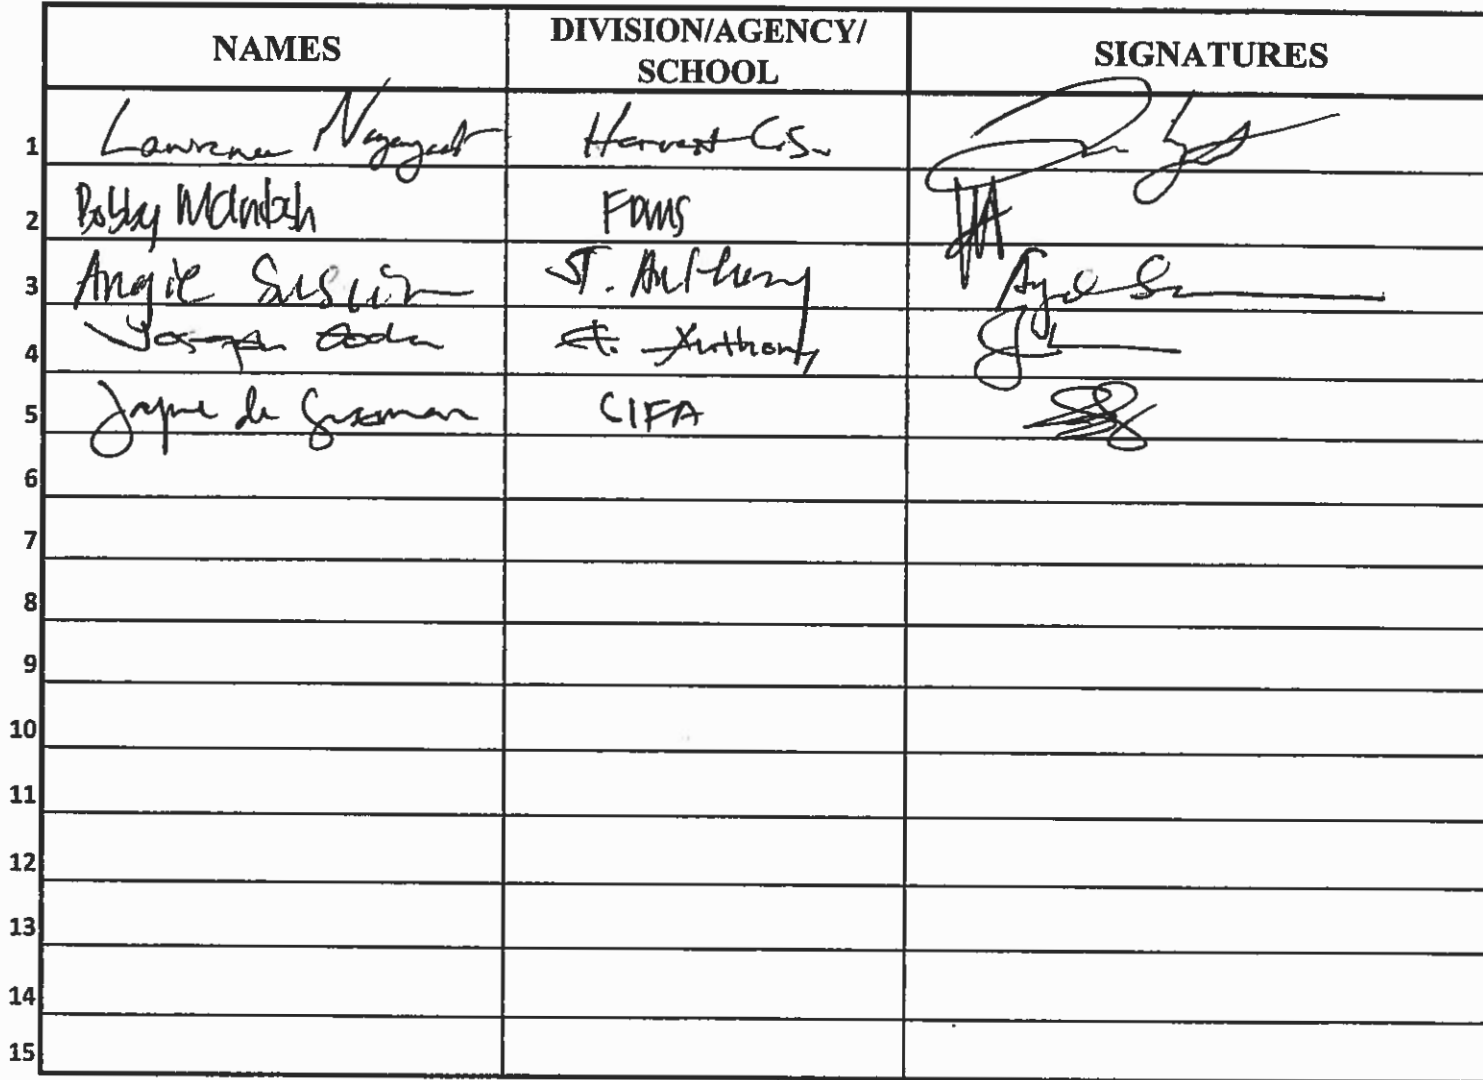 NAMES DIVISION/AGENCY/ SCHOOL SIGNATURES
1 Lawrence Harvest C.S.
2 Bobby McIntosh FDMS
3 Angie St. Anthony
4 Joseph St. Anthony
5 Jayne de Guzman CIFA
6
7
8
9
10
11
12
13
14
15